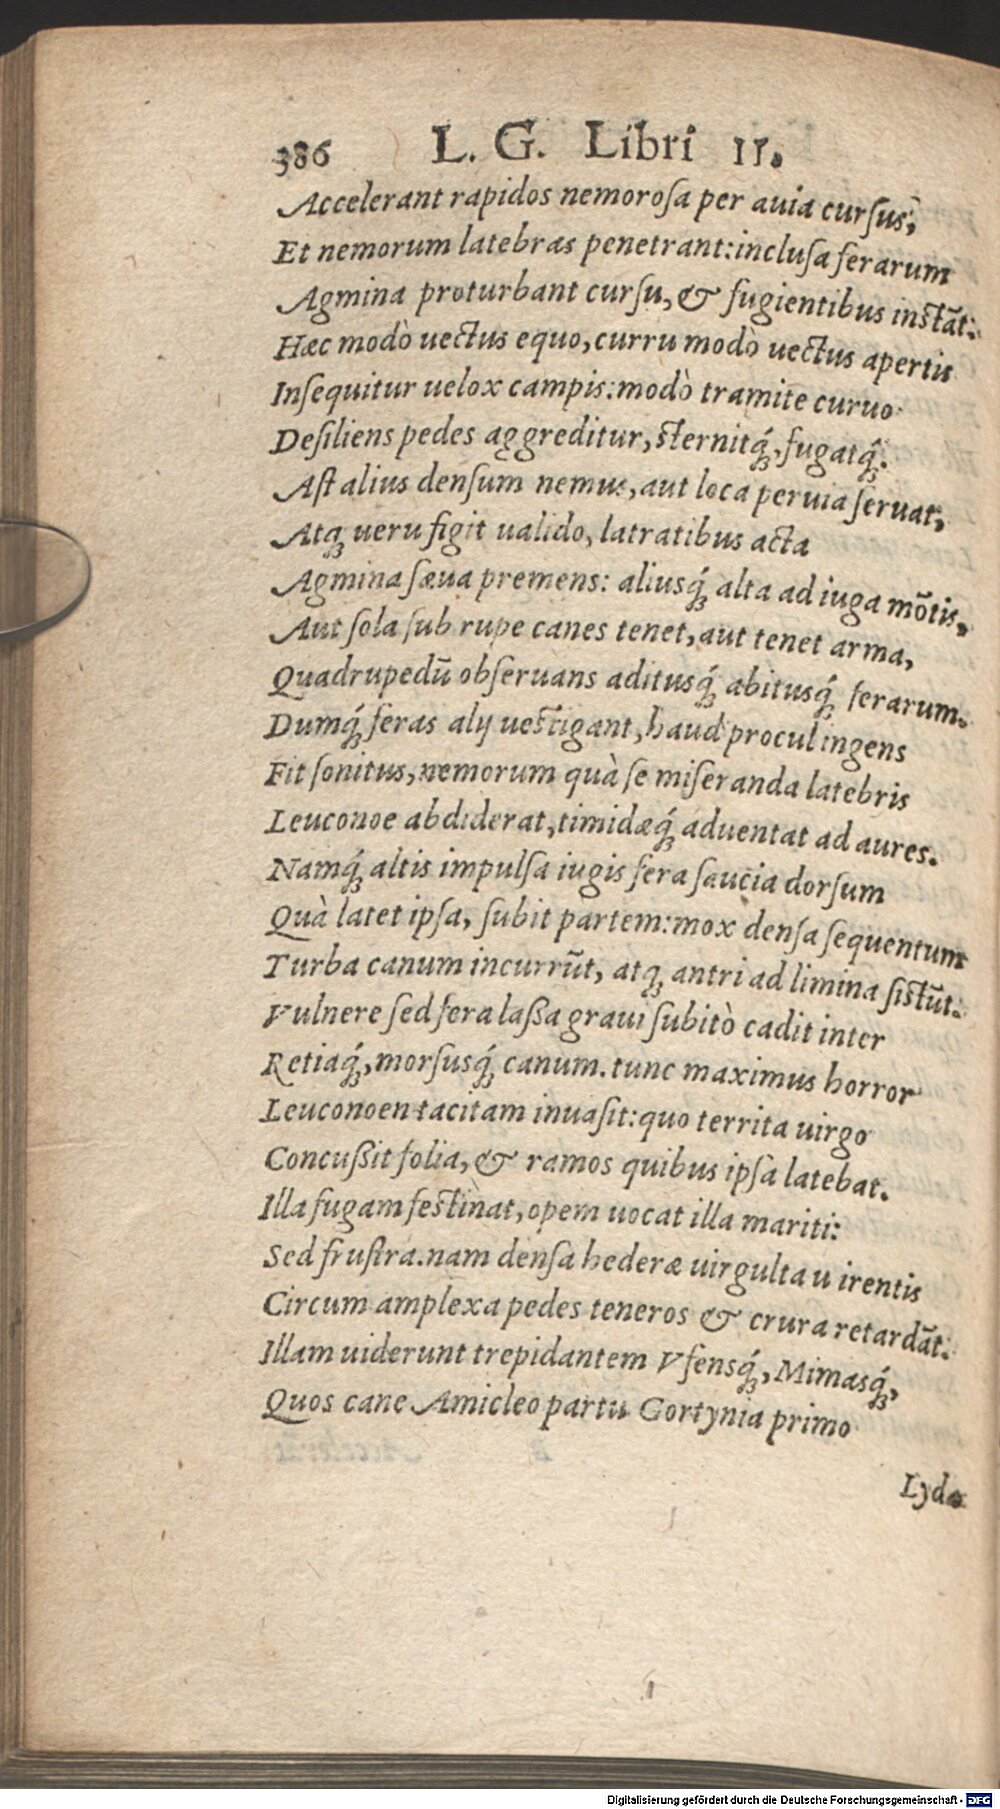 386 L. G. Libri II.
Accelerant rapidos nemoroſa per auia curſus,
Et nemorum latebras penetrant: incluſa ferarum
Agmina proturbant curſu, & fugientibus inſtãt.
Hæc modò uectus equo, curru modò uectus apertis
Inſequitur uelox campis: modò tramite curuo
Deſiliens pedes aggreditur, ſternitq́;, fugatq́;.
Aſt alius denſum nemus, aut loca peruia ſeruat,
Atq; ueru figit ualido, latratibus acta
Agmina ſæua premens: aliusq́; alta ad iuga mõtis,
Aut ſola ſub rupe canes tenet, aut tenet arma,
Quadrupedũ obſeruans aditusq́; abitusq́; ferarum.
Dumq́; feras alij ueſtigant, haud procul ingens
Fit ſonitus, nemorum quà ſe miſeranda latebris
Leuconoe abdiderat, timidæq́; aduentat ad aures.
Namq́; altis impulſa iugis fera ſaucia dorſum
Quà latet ipſa, ſubit partem: mox denſa ſequentum
Turba canum incurrũt, atq; antri ad limina ſiſtũt.
Vulnere ſed fera laſſa graui ſubitò cadit inter
Retiaq́;, morſusq́; canum. tunc maximus horror
Leuconoen tacitam inuaſit: quo territa uirgo
Concuſsit folia, & ramos quibus ipſa latebat.
Illa fugam feſtinat, opem uocat illa mariti:
Sed fruſtra. nam denſa hederæ uirgulta u irentis
Circum amplexa pedes teneros & crura retardãt.
Illam uiderunt trepidantem Vfensq́;, Mimasq́;,
Quos cane Amicleo partu Gortynia primo
Lydæ
Digitalisierung gefördert durch die Deutsche Forschungsgemeinschaft - DFG